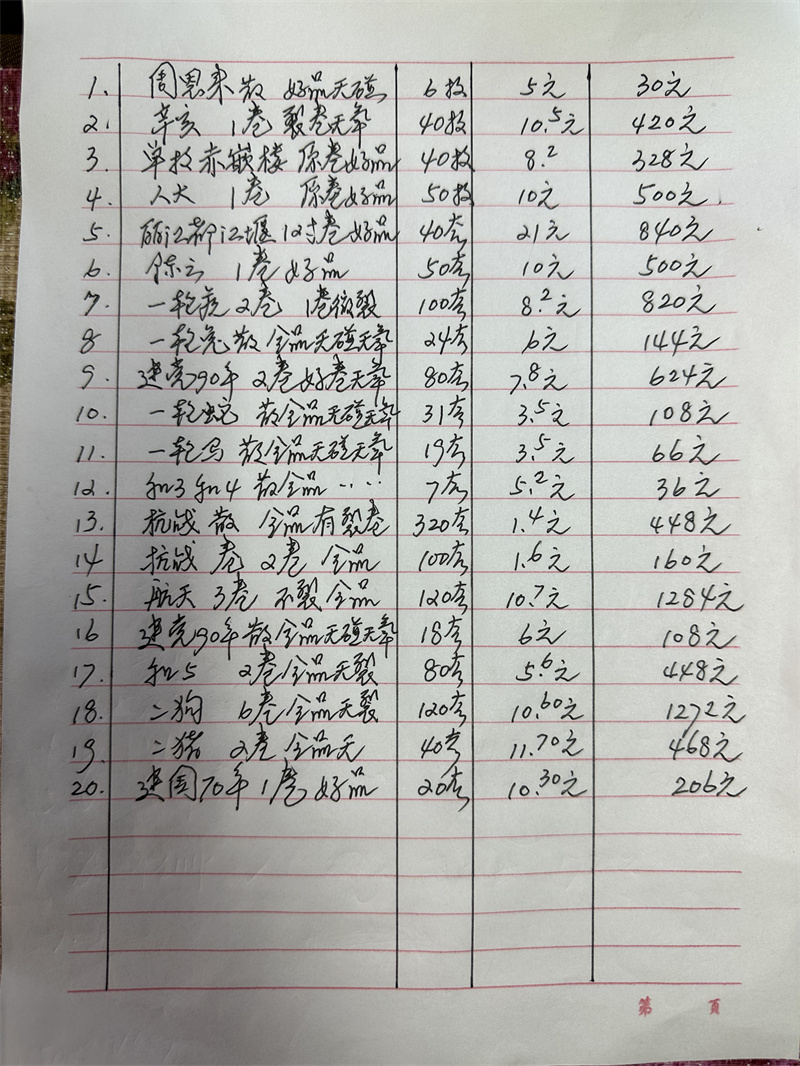 1. 周恩来散 好品无碰 6枚 5元 30元
2. 辛亥 1卷 裂卷无氧 40枚 10.5元 420元
3. 单枚赤嵌楼 原卷好品 40枚 8.2 328元
4. 人大 1卷 原卷好品 50枚 10元 500元
5. 丽江都江堰 1对卷好品 40套 21元 840元
6. 陈云 1卷 好品 50套 10元 500元
7. 一轮猴2卷 1卷微裂 100套 8.2元 820元
8 一轮兔散全品无碰无氧 24套 6元 144元
9. 建党90年 2卷好卷无氧 80套 7.8元 624元
10. 一轮蛇 散全品无碰无氧 31套 3.5元 108元
11. 一轮马 散全品无碰无氧 19套 3.5元 66元
12. 和3和4 散全品 ‥ ‥ 7套 5.2元 36元
13. 抗战散 全品有裂卷 320套 1.4元 448元
14 抗战 卷 2卷 全品 100套 1.6元 160元
15. 航天 3卷 不裂全品 120套 10.7元 1284元
16 建党90年散全品无碰无氧 18套 6元 108元
17. 和5 2卷全品无裂 80套 5.6元 448元
18. 二狗 6卷全品无裂 120套 10.60元 1272元
19. 二猪 2卷 全品无 40套 11.70元 468元
20. 建国70年1卷好品 20套 10.30元 206元
第 頁